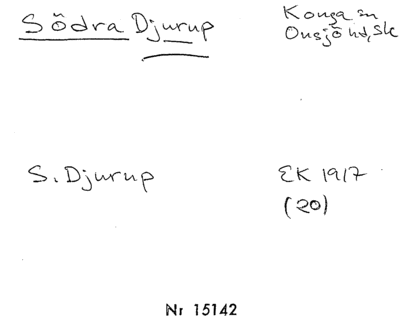 Södra Djurup
Konga sn
Onsjö hd, Sk
S. Djurup
EK 1917
(20)
Nr 15142